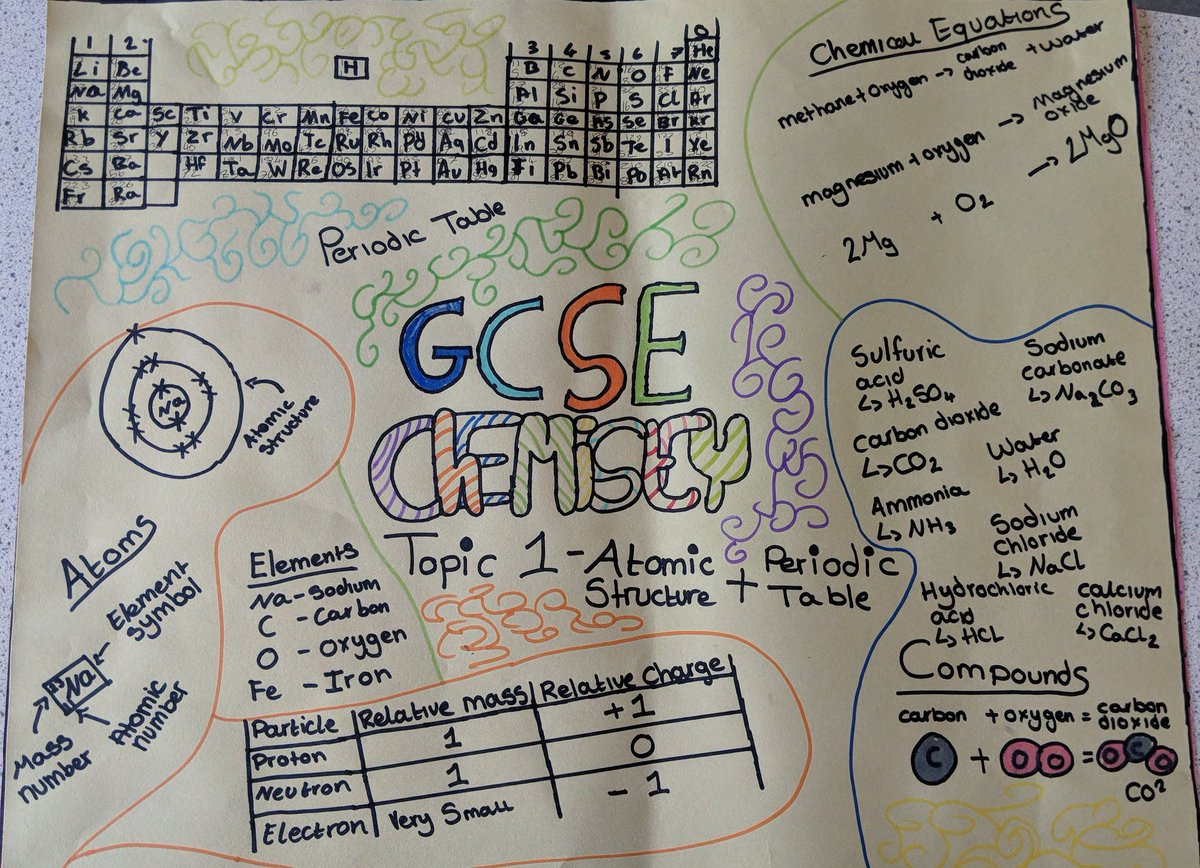 1 2 3 4 5 6 7 0
H He
Li Be B C N O F Ne
Na Mg Al Si P S Cl Ar
K Ca Sc Ti V Cr Mn Fe Co Ni Cu Zn Ga Ge As Se Br Kr
Rb Sr Y Zr Nb Mo Tc Ru Rh Pd Ag Cd In Sn Sb Te I Xe
Cs Ba Hf Ta W Re Os Ir Pt Au Hg Pb Bi Po At Rn
Fr Ra
Periodic Table
Chemical Equations
methane + oxygen → carbon dioxide + water
magnesium + oxygen → magnesium oxide
2Mg + O2 → 2MgO
GCSE
Chemistry
Topic 1 - Atomic Structure + Periodic Table
Na
Atomic
Structure
Atoms
Element
symbol
Na
Mass
number
Atomic
number
Elements
Na - Sodium
C - Carbon
O - Oxygen
Fe - Iron
Particle Relative mass Relative Charge
Proton 1 +1
Neutron 1 0
Electron Very Small - 1
Sulfuric
acid
↳ H2SO4
Sodium
carbonate
↳ Na2CO3
Carbon dioxide
↳ CO2
Water
↳ H2O
Ammonia
↳ NH3
Sodium
chloride
↳ NaCl
Hydrochloric
acid
↳ HCL
calcium
chloride
↳ CaCl2
Compounds
carbon + oxygen = carbon dioxide
C + O O = O C O
CO2